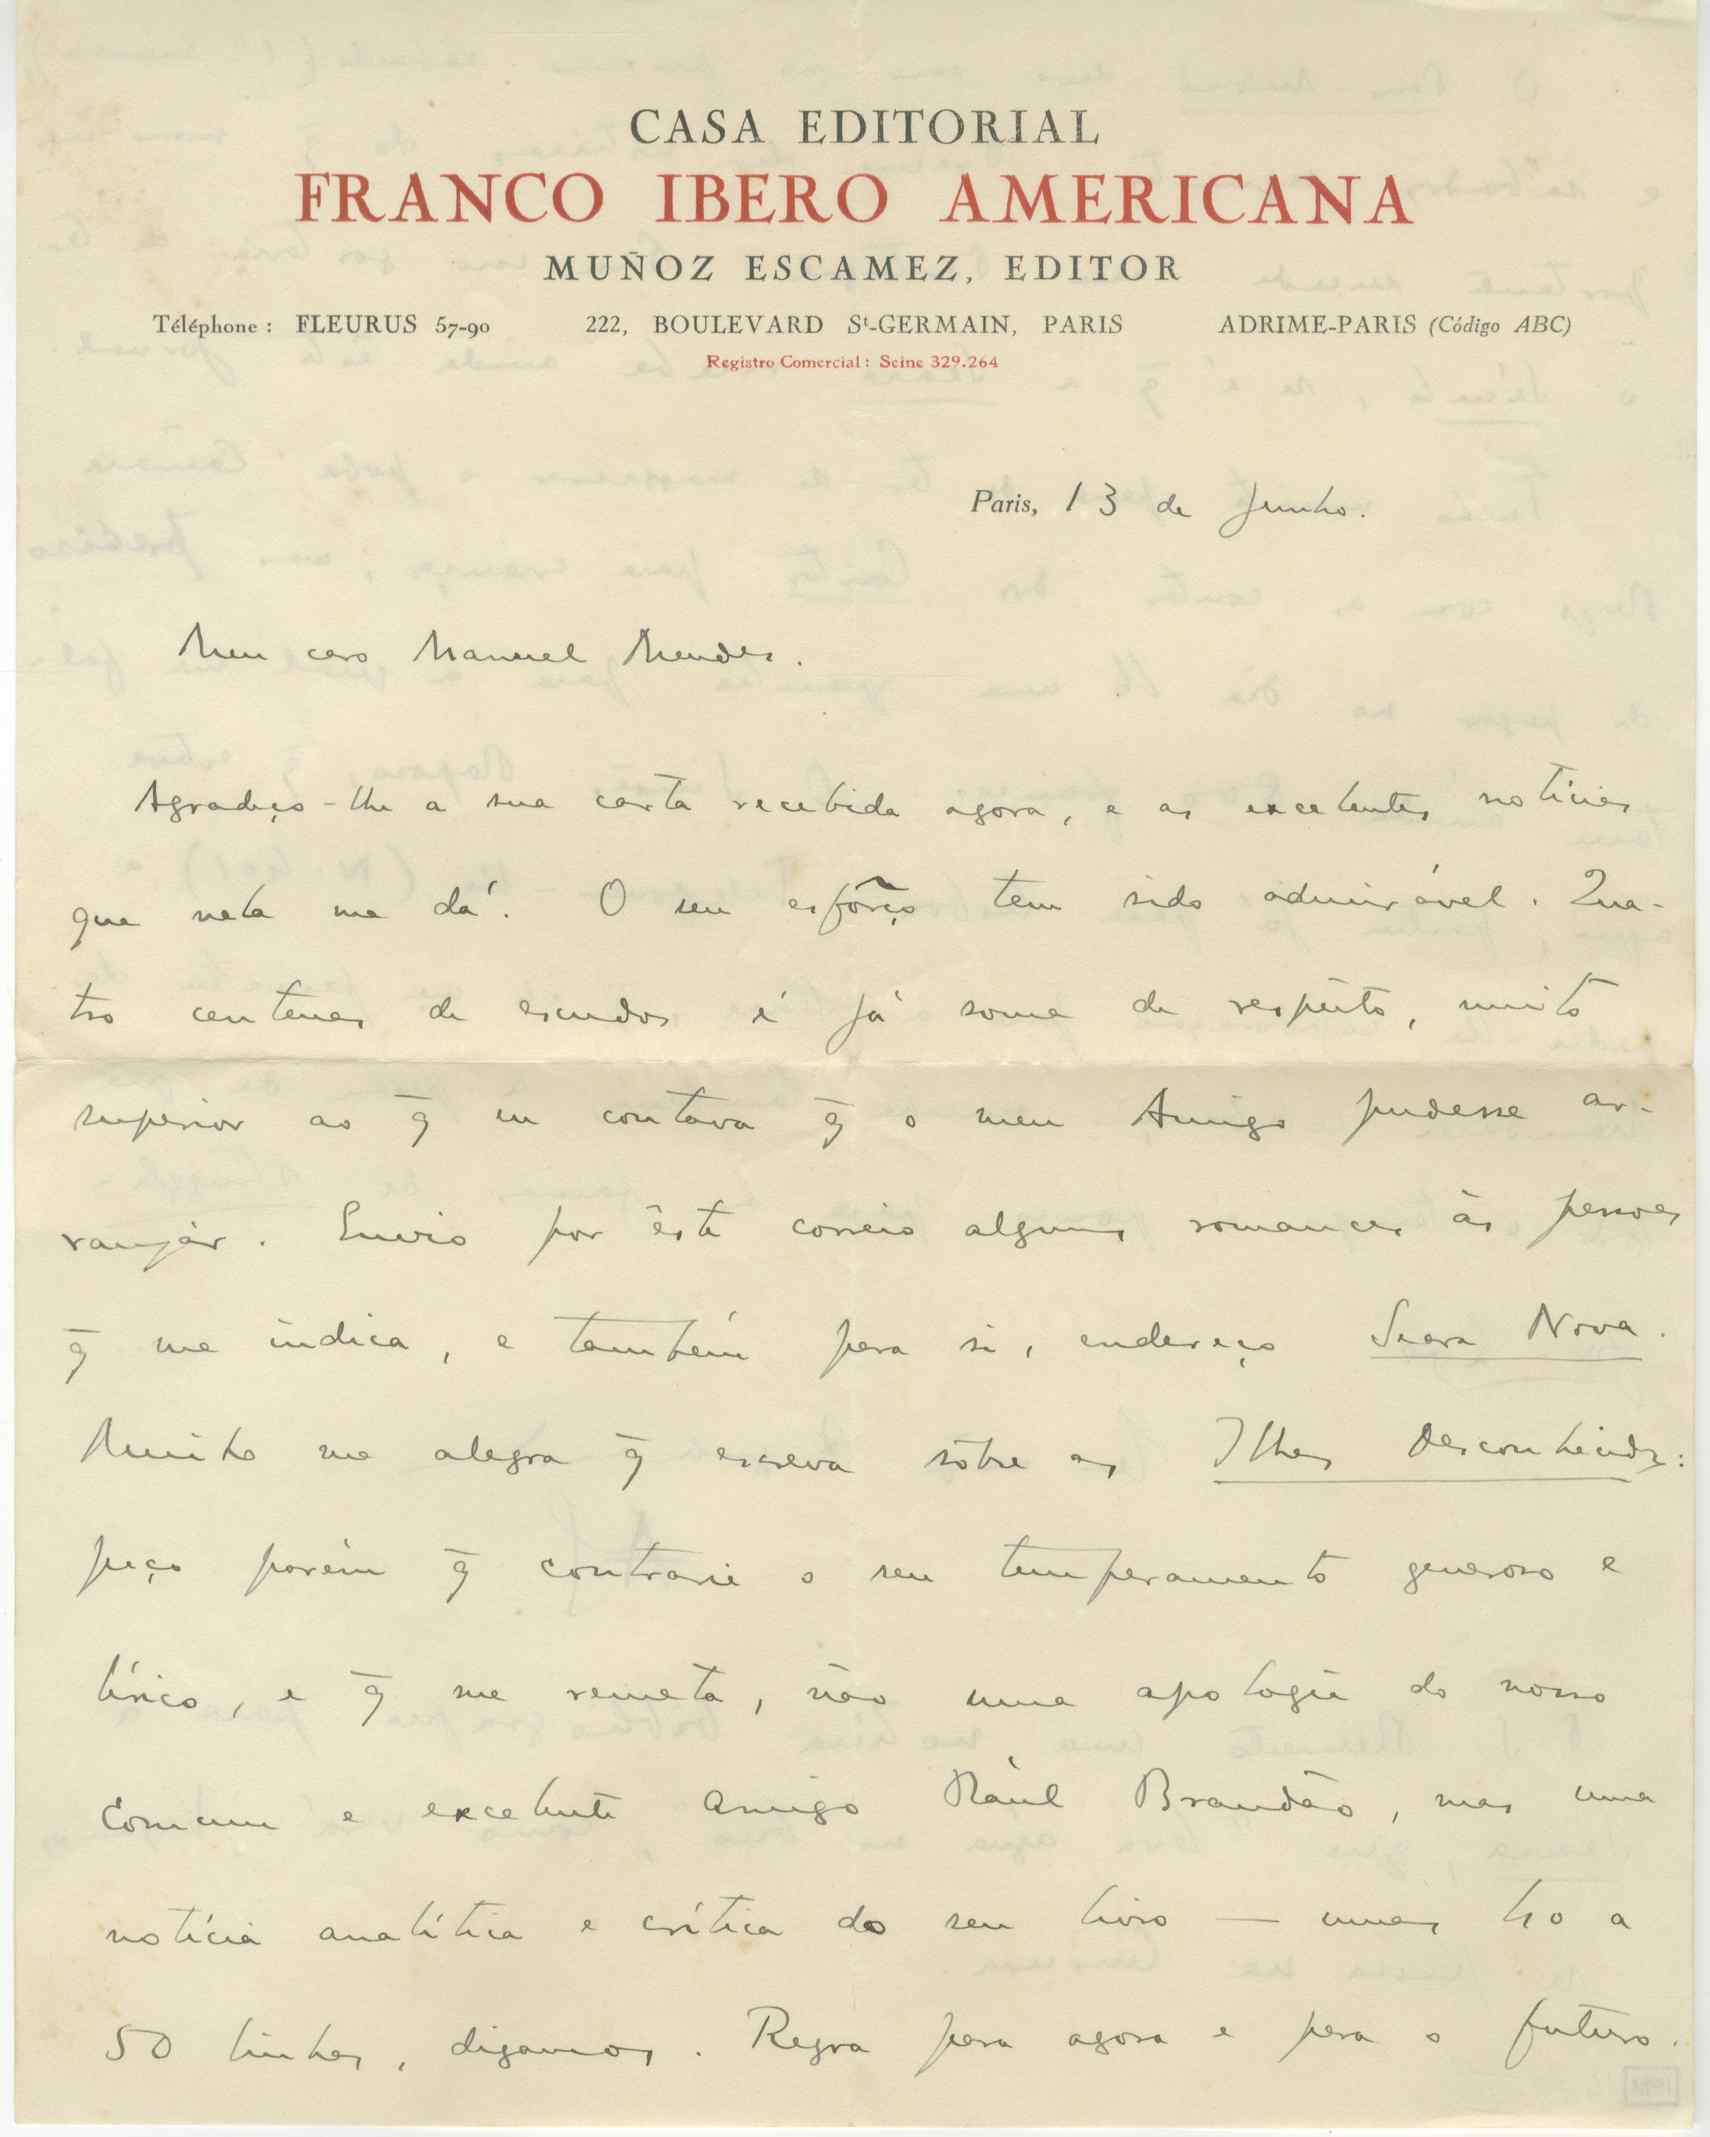 CASA EDITORIAL
FRANCO IBERO AMERICANA
MUÑOZ ESCAMEZ, EDITOR
Téléphone : FLEURUS 57-90 222, BOULEVARD St-GERMAIN, PARIS ADRIME-PARIS (Código ABC)
Registro Comercial : Seine 329.264
Paris, 13 de Junho.
Meu caro Manuel Mendes.
Agradeço-lhe a sua carta recebida agora, e as excelentes notícias
que nela me dá. O seu esfôrço tem sido admirável. Qua-
tro centenas de escudos é já soma de respeito, muito
superior ao q̄ eu contava q̄ o meu Amigo pudesse ar-
ranjar. Envio por êste correio alguns romances às pessoas
q̄ me indica, e também pera si, endereço Seara Nova.
Muito me alegra q̄ escreva sôbre as Ilhas Desconhecidas:
peço porém q̄ contrarie o seu temperamento generoso e
lírico, e q̄ me remeta, não uma apologia do nosso
comum e excelente amigo Raúl Brandão, mas uma
notícia analítica e crítica do seu livro — umas 40 a
50 linhas, digamos. Regra pera agora e pera o futuro.